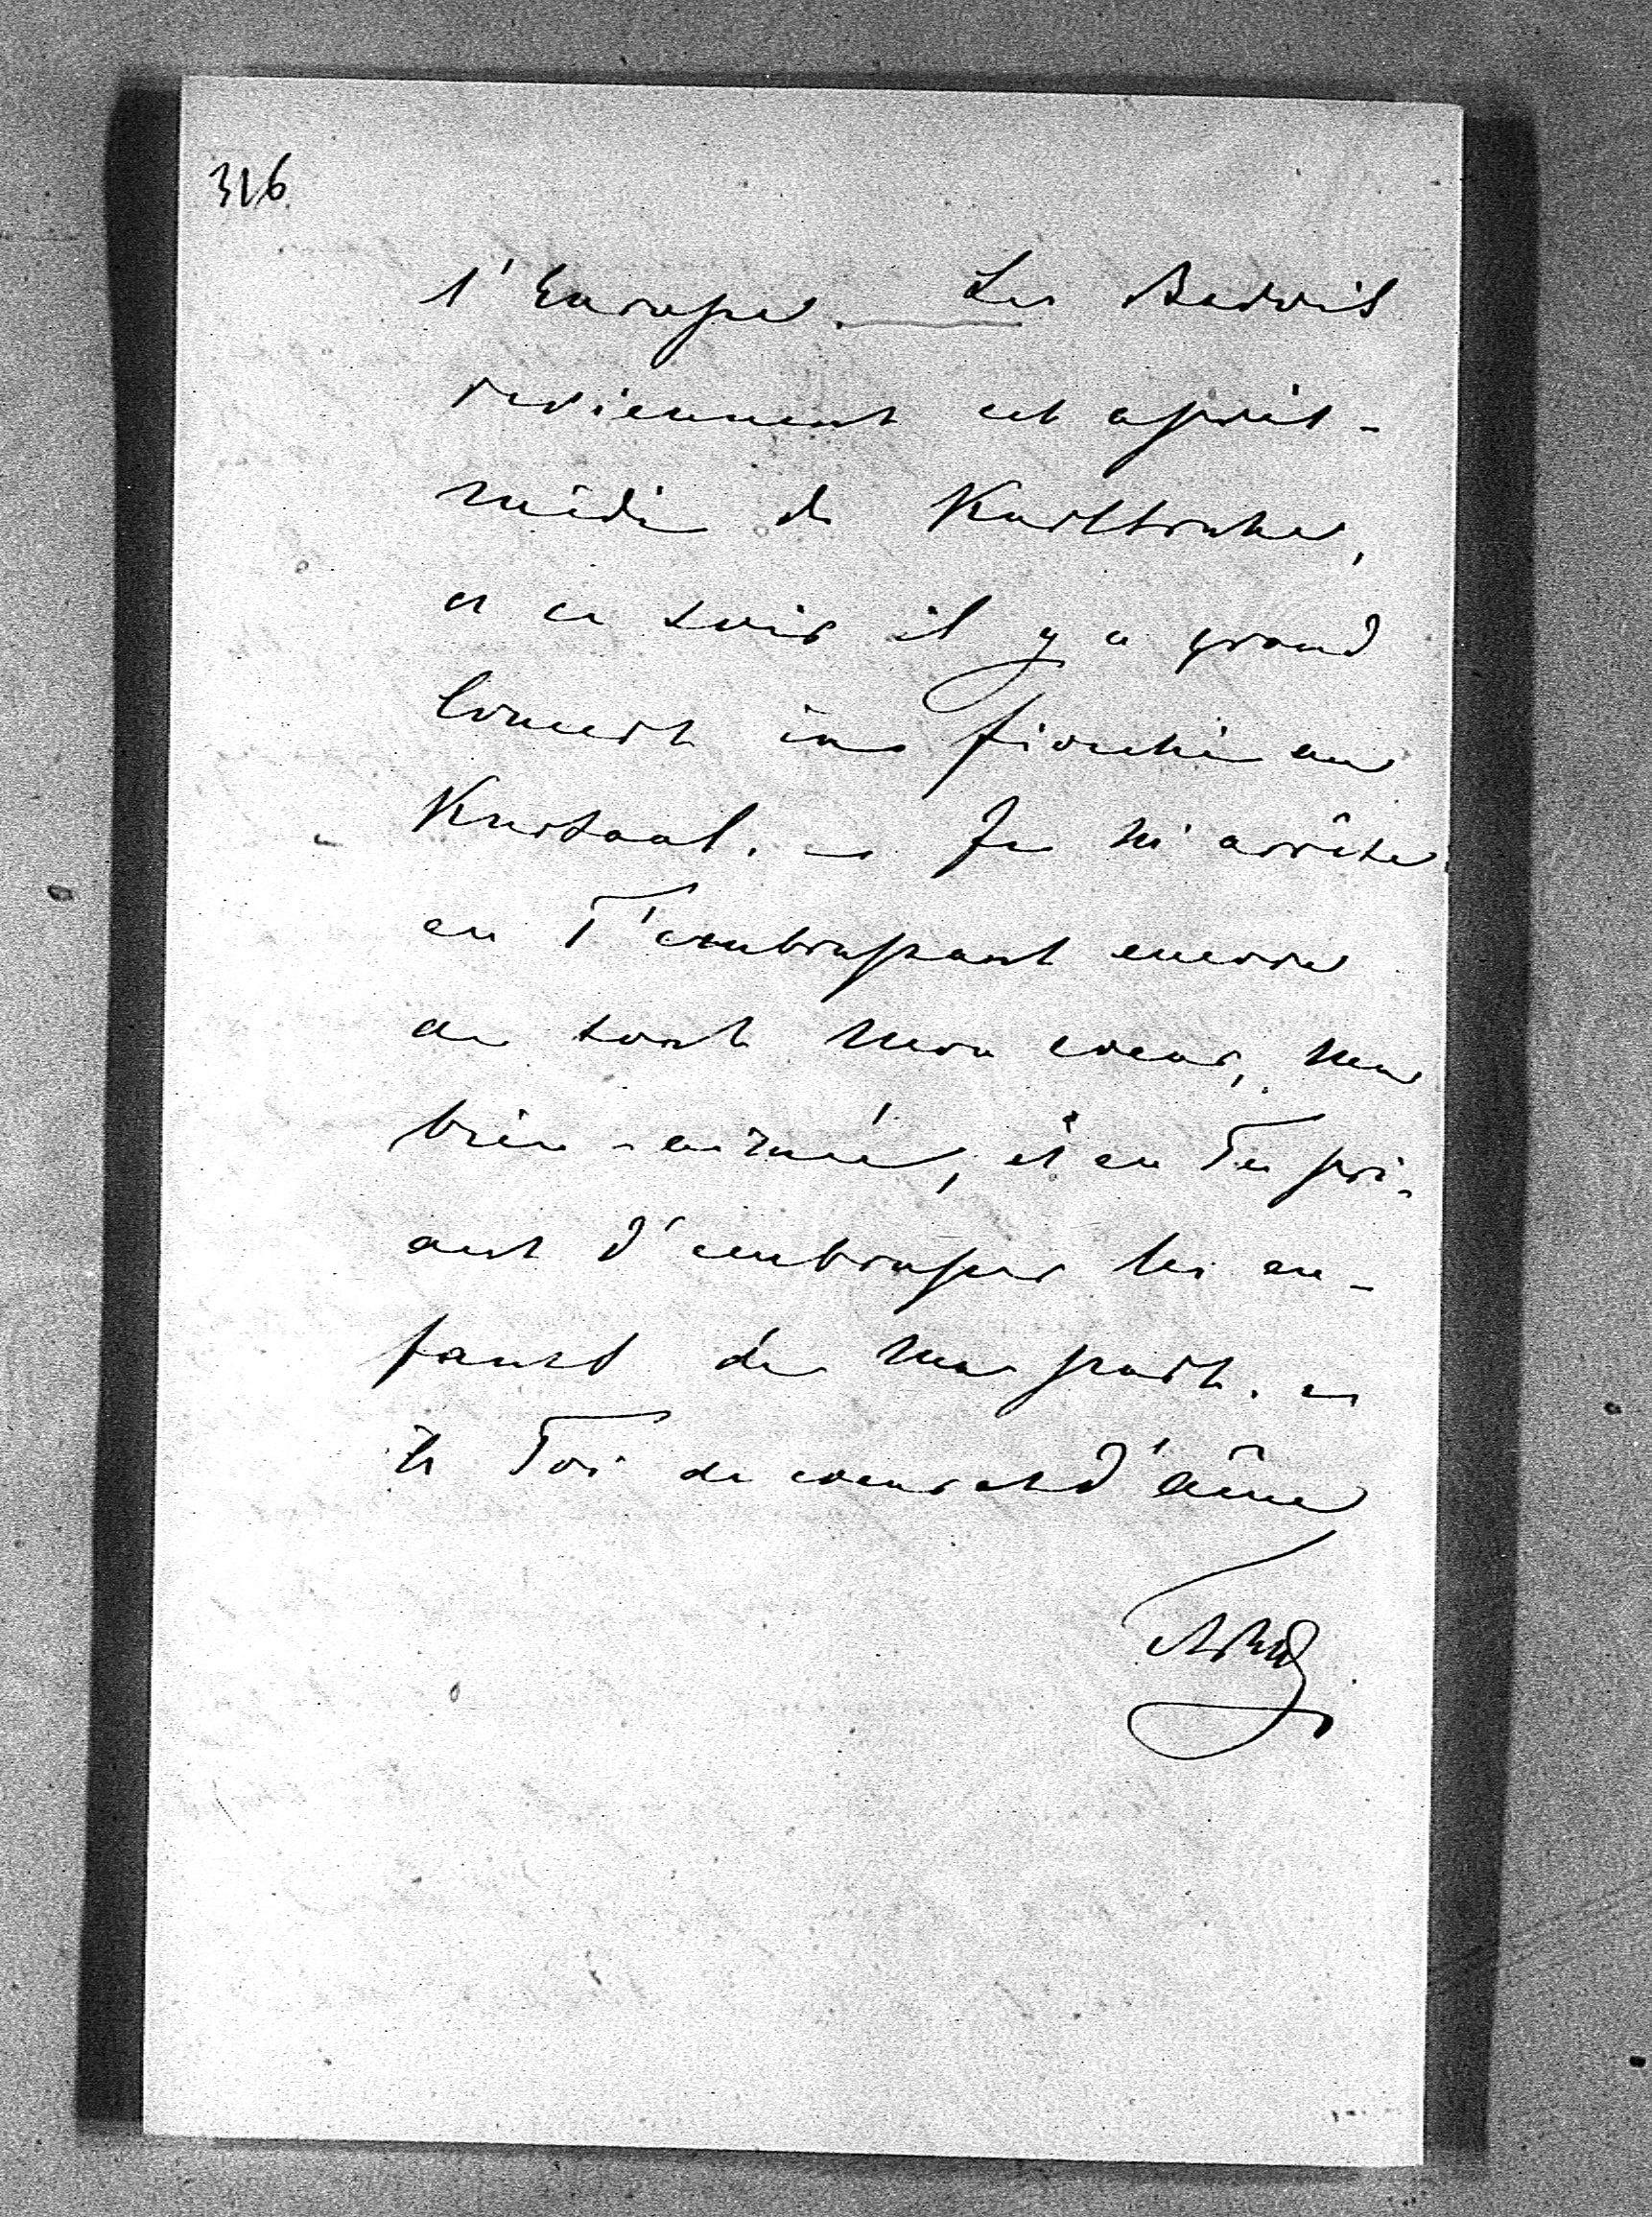 316
l'Europe. — Les Badois
reviennent cet après-
midi de Karlsruhe,
et ce soir il y a grand
Concert in fiocchi au
Kursaal. — Je m'arrête
en T'embrassant encore
de tout mon coeur, ma
bien-aimée, et en Te pri-
ant d'embrasser les en-
fants de ma part. —
à Toi de coeur et d'âme